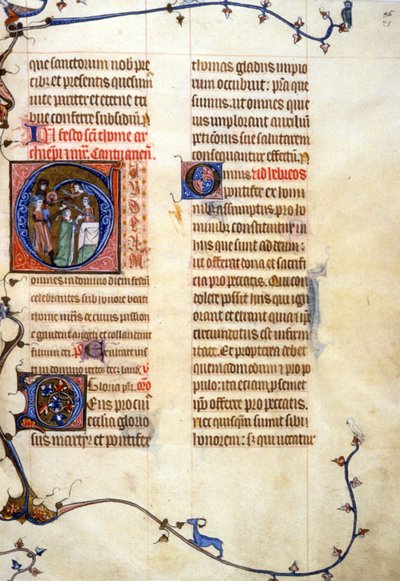 que sanctorum nob̄ pre
cib⁊ et presentis quesum⁹
mite pariter et eterne tri
bue conferre subsidiū.
In festo sc̄i thome ar
chiep̄i mr̄. Cantuarien̄.
GAUDEAM
omnes in domino diem festū
celebrantes sub honore beati
thome mr̄is de cuius passione
gaudent angeli et collaudant
filium dei. p̄s Exultate iusti
in domino rectos decet laud. v̄
Gloria pr̄i. or̄o
Deus pro cui⁹
ecclesia glorio
sus martyr et pontifex
thomas gladiis impio
rum occubuit: p̄sta que
sumus. ut omnes qui e
ius implorant auxiliū
peticionis sue salutarem
consequantur effectū
Omnis ad hebreos
pontifex ex homi
nib⁊ assumptus pro ho
minib⁊ constituitur in
hiis que sunt ad deum:
ut offerat dona et sacrifi
cia pro peccatis. Qui con
dolere possit hiis qui ign
orant et errant quia et ip̄e
circumdatus est infirmi
tate. Et propterea debet
quemadmodum et pro po
pulo: ita etiam pro semet
ip̄o offerre pro peccatis.
Nec quisquam sumit sibi
honorem: s⁊ qui vocatur